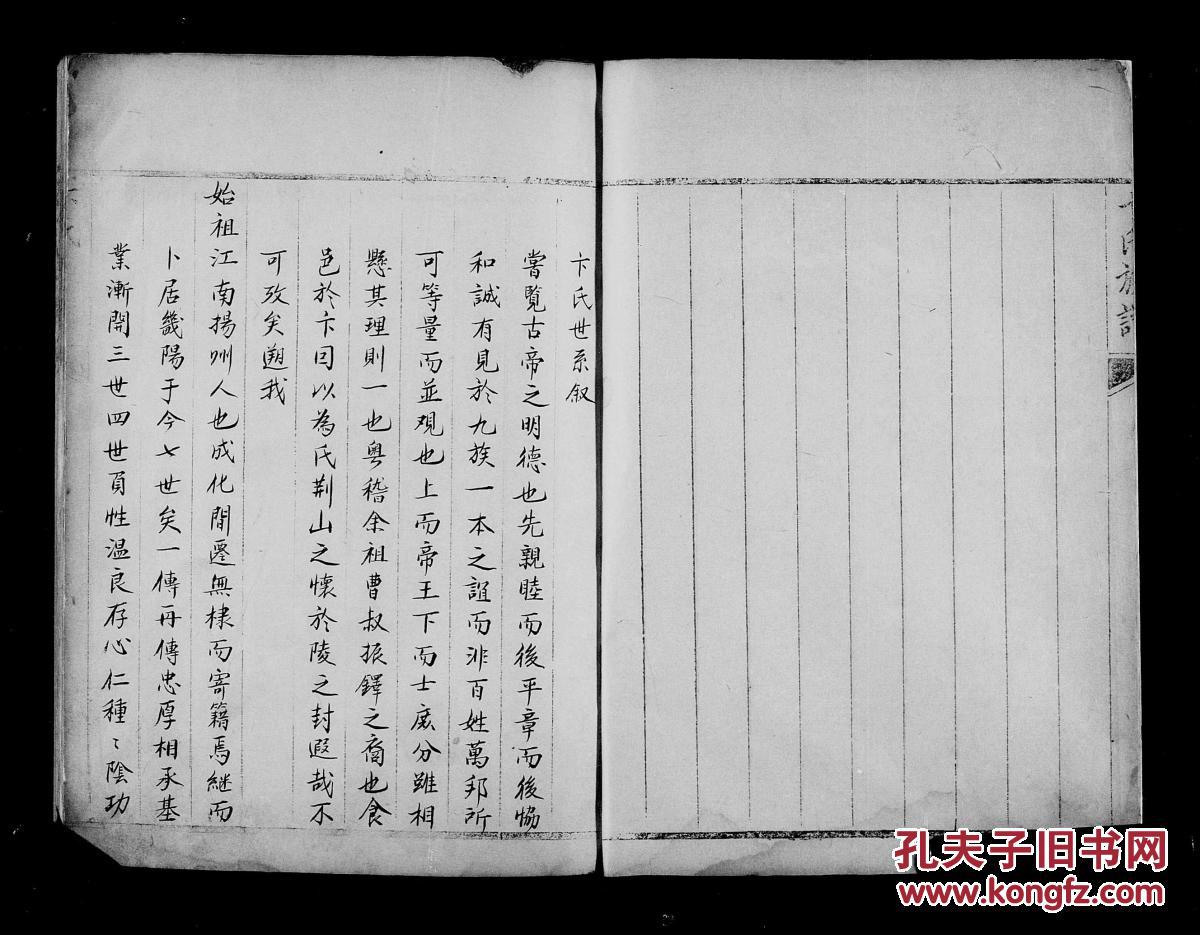 氏族譜
卞氏世系叙
嘗覽古帝之明德也先親睦而後平章而後恊
和誠有見於九族一本之誼而非百姓萬邦所
可等量而並观也上而帝王下而士庶分雖相
懸其理則一也粤稽余祖曹叔振鐸之裔也食
邑於卞囙以為氏荆山之懷於陵之封遐哉不
可攷矣遡我
始祖江南揚州人也成化間遷無棣而寄籍焉継而
卜居畿陽于今七世矣一傳再傳忠厚相承基
業漸開三世四世員性温良存心仁種〻陰功
孔夫子旧书网
www.kongfz.com